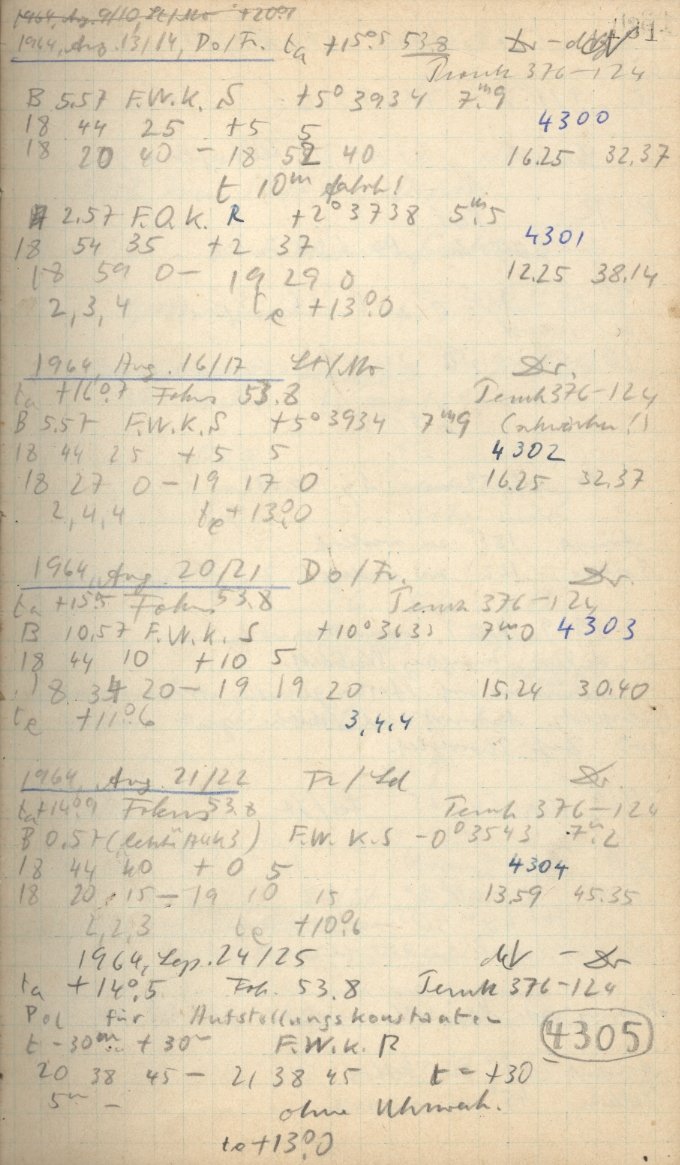 1964, Aug. 9/10, St/Mo +20°9
1964, Aug. 13/14, Do/Fr. ta +15°5 53.8 Dr
Temk 376-124
B 5.57 F.W.K. S +5° 3934 7m.9
18 44 25 +5 5 4300
18 20 40 - 18 52 40 16.25 32.37
t 10m falsch!
2.57 F.O.K. R +2° 3738 5m.5
18 54 35 +2 37 4301
18 59 0 - 19 29 0 12.25 38.14
2, 3, 4 te +13°.0
1964, Aug. 16/17 St/Mo Dr.
ta +16°.7 Fokus 53.8 Temk 376-124
B 5.57 F.W.K.S +5° 3934 7m.9 (schwächer!)
18 44 25 +5 5 4302
18 27 0 - 19 17 0 16.25 32.37
2, 4, 4 te +13°.0
1964, Aug 20/21 Do/Fr. Dr.
ta +15°5 Fokus 53.8 Temk 376-124
B 10.57 F.W.K. S +10° 3633 7m.0 4303
18 44 10 +10 5
18 34 20 - 19 19 20 15.24 30.40
te +11°.6 3, 4, 4
1964, Aug 21/22 Fr/Sd Dr.
ta +14°.9 Fokus 53.8 Temk 376-124
B 0.57 F.W.K.S -0° 3543 7m.2
18 44 40 +0 5 4304
18 20 15 - 19 10 15 13.59 45.35
2, 2, 3 te +10°.6
1964, Sep. 24/25 - Dr
ta +14°.5 Fok. 53.8 Temk 376-124
Pol für Aufstellungskonstanten
t -30m + 30m F.W.K. R 4305
20 38 45 - 21 38 45 t = +30
5m - ohne Uhrwerk.
te +13°.0